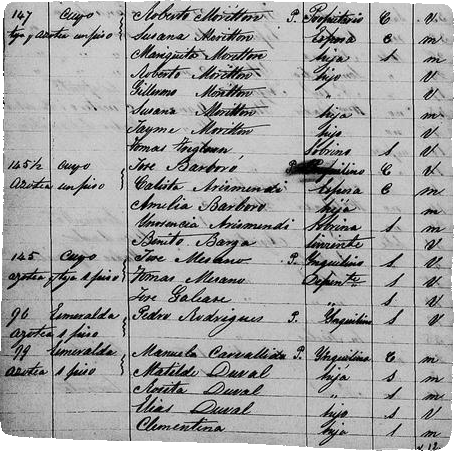 147 Cuyo Roberto Moritton P. Propietario C V
teja y azotea un piso Susana Moritton Esposa C m
Mariquita Moritton hija S m
Roberto Moritton hijo V
Gillermo Moritton " V
Susana Moritton hija m
Jayme Moritton hijo V
Tomas Sobrino S V
145 1/2 Cuyo José Barboró P. Ynquilino C V
Azotea un piso Calista Arismendi Esposa C m
Amelia Barboro hija m
Ynocencia Arismendi Sobrina S m
Benito Barga Sirviente V
145 Cuyo Jose Mesano P. Ynquilino S V
azotea y teja 1 piso Tomas Mesano Depente S V
Jose Galease " S V
96 Esmeralda Pedro Rodrigues P. Ynquilino S V
Azotea 1 piso
99 Esmeralda Manuela Carvallido P. Ynquilina C m
Azotea 1 piso Matilde Duval hija S m
Rosita Duval " S m
Elias Duval hijo S V
Clementina hija S m